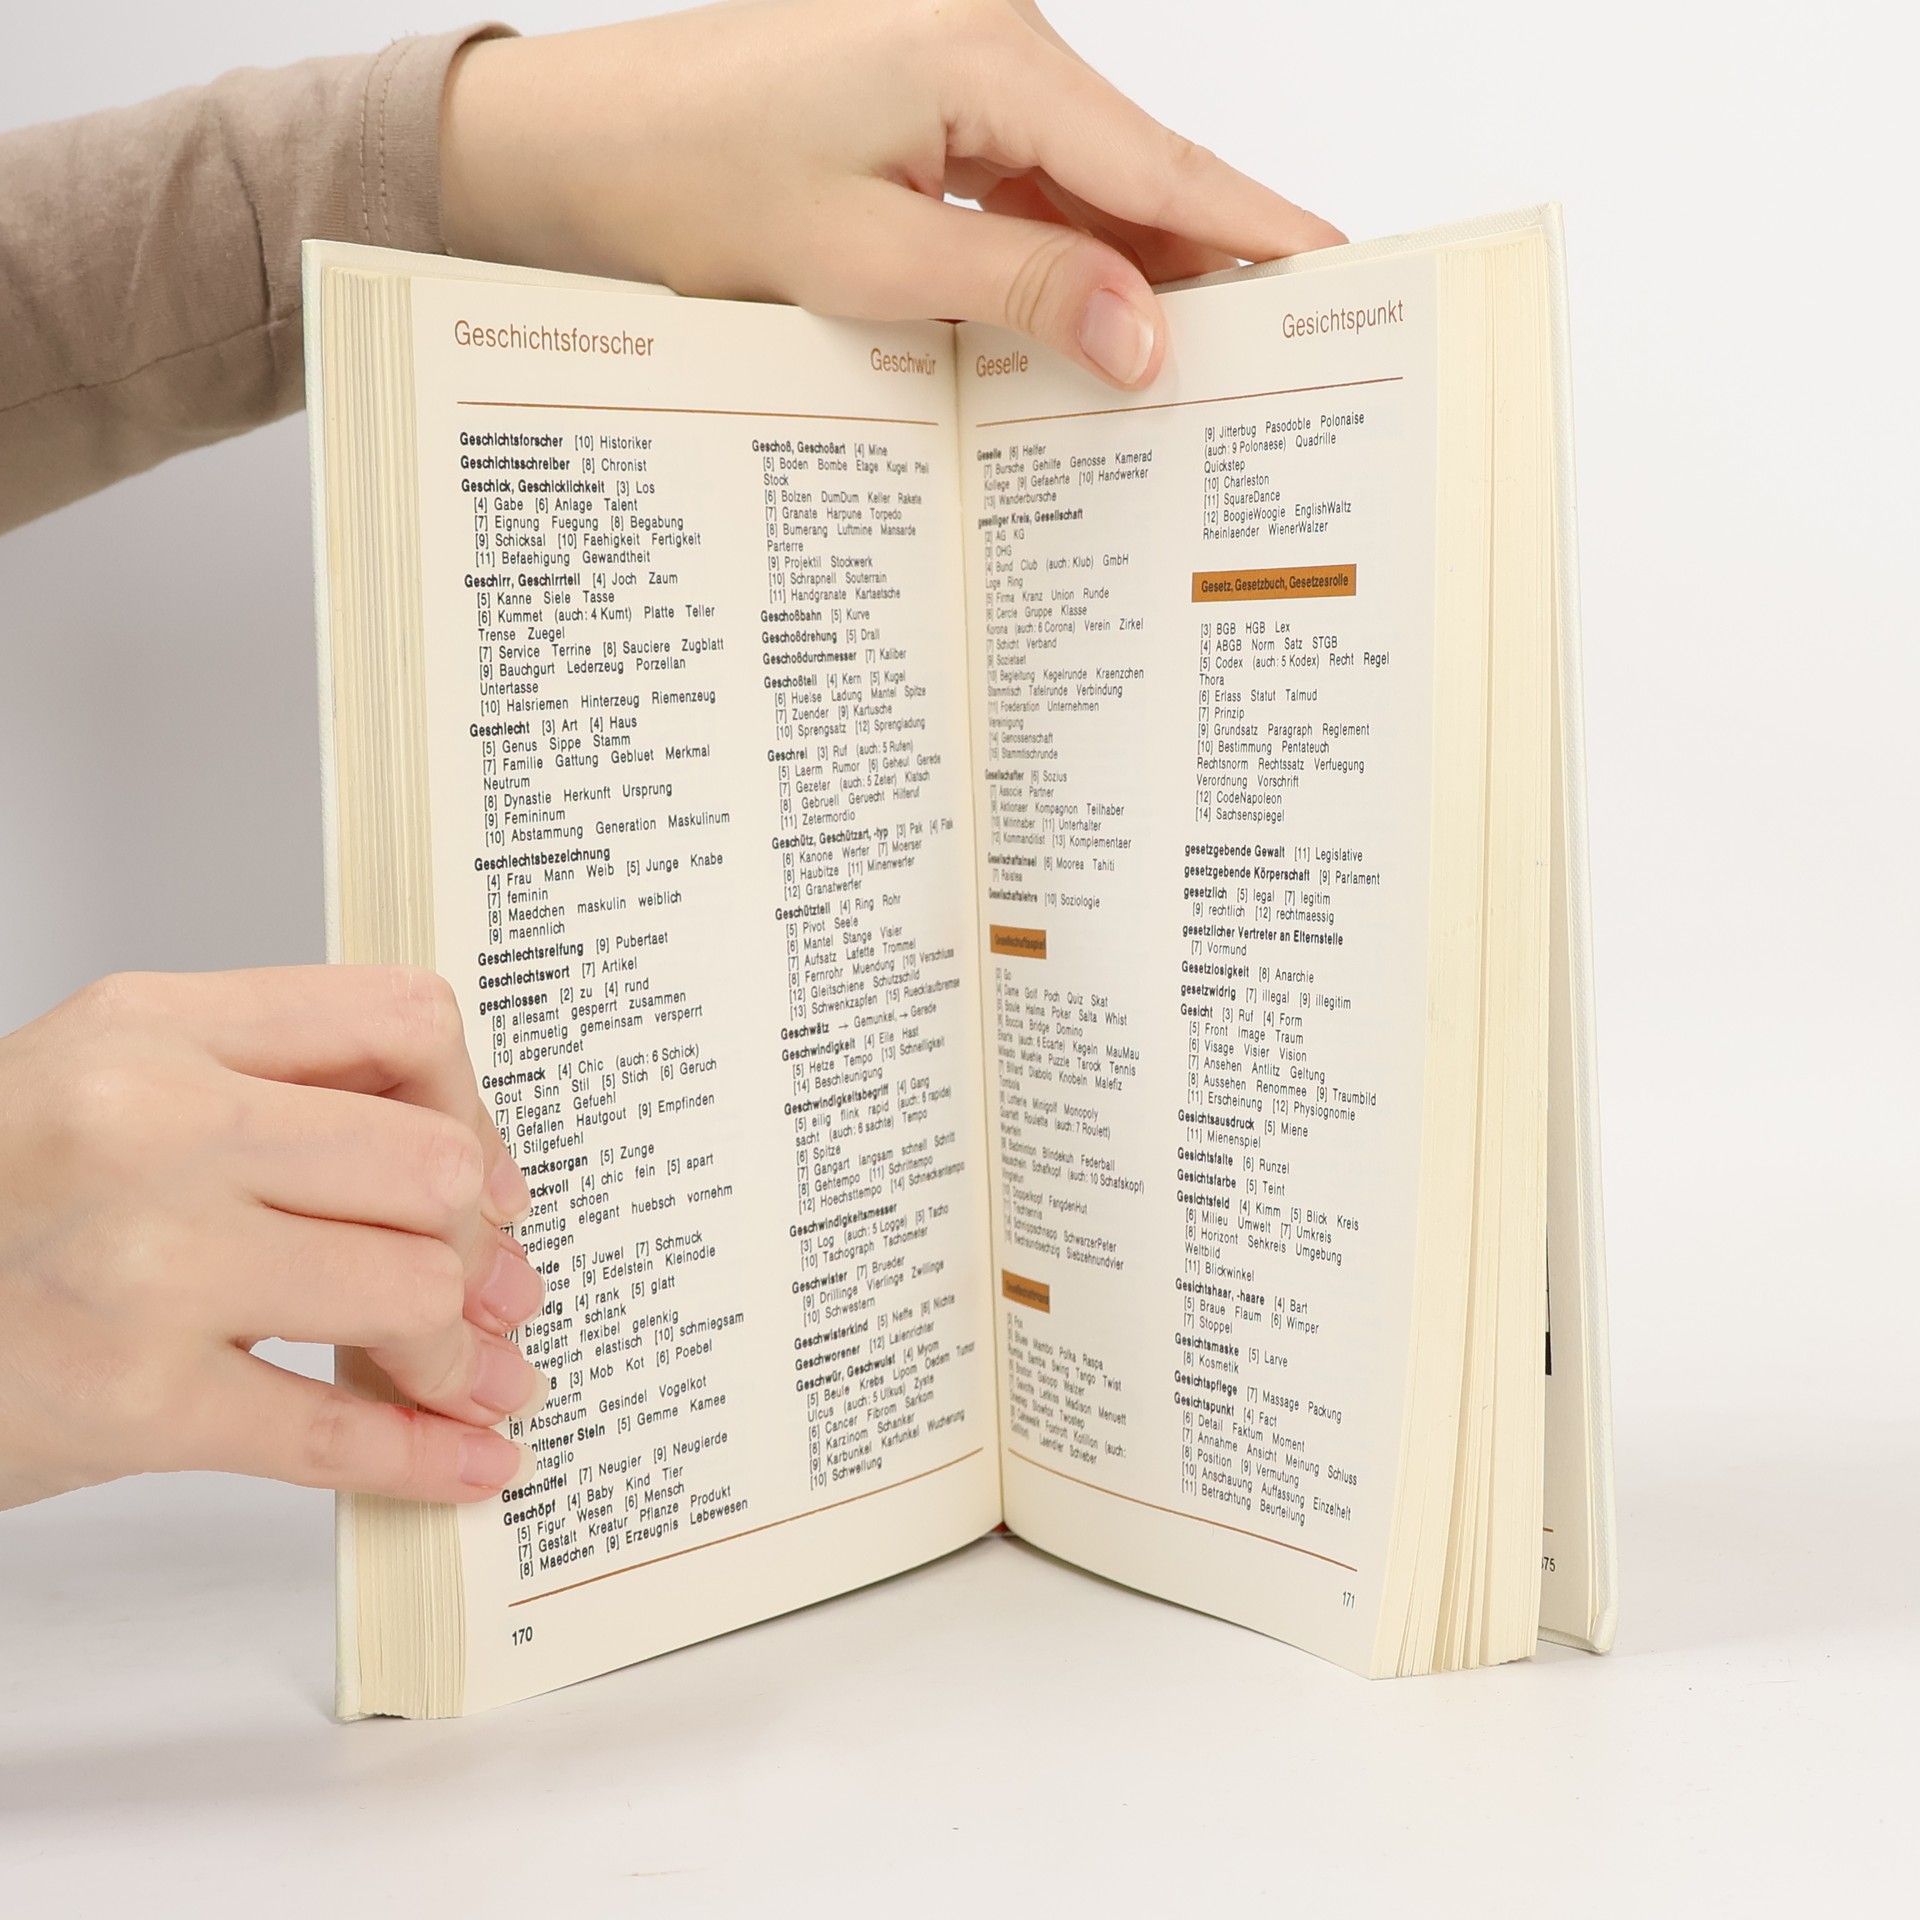 Geschichtsforscher
Geschwür
Geschichtsforscher [10] Historiker
Geschichtsschreiber [8] Chronist
Geschick, Geschicklichkeit [3] Los
[4] Gabe [6] Anlage Talent
[7] Eignung Fuegung [8] Begabung
[9] Schicksal [10] Faehigkeit Fertigkeit
[11] Befaehigung Gewandtheit
Geschirr, Geschirrteil [4] Joch Zaum
[5] Kanne Siele Tasse
[6] Kummet (auch: 4 Kumt) Platte Teller
Trense Zuegel
[7] Service Terrine [8] Sauciere Zugblatt
[9] Bauchgurt Lederzeug Porzellan
Untertasse
[10] Halsriemen Hinterzeug Riemenzeug
Geschlecht [3] Art [4] Haus
[5] Genus Sippe Stamm
[7] Familie Gattung Gebluet Merkmal
Neutrum
[8] Dynastie Herkunft Ursprung
[9] Femininum
[10] Abstammung Generation Maskulinum
Geschlechtsbezeichnung
[4] Frau Mann Weib [5] Junge Knabe
[7] feminin
[8] Maedchen maskulin weiblich
[9] maennlich
Geschlechtsreifung [9] Pubertaet
Geschlechtswort [7] Artikel
geschlossen [2] zu [4] rund
[8] allesamt gesperrt zusammen
[9] einmuetig gemeinsam versperrt
[10] abgerundet
Geschmack [4] Chic (auch: 6 Schick)
Gout Sinn Stil [5] Stich [6] Geruch
[7] Eleganz Gefuehl
[8] Gefallen Hautgout [9] Empfinden
1] Stilgefuehl
macksorgan [5] Zunge
ackvoll [4] chic fein [5] apart
ezent schoen
[7] anmutig elegant huebsch vornehm
gediegen
eide [5] Juwel [7] Schmuck
iose [9] Edelstein Kleinodie
idig [4] rank [5] glatt
[7] biegsam schlank
aalglatt flexibel gelenkig
eweglich elastisch [10] schmiegsam
[3] Mob Kot [6] Poebel
wuerm
[8] Abschaum Gesindel Vogelkot
nittener Stein [5] Gemme Kamee
ntaglio
Geschnüffel [7] Neugier [9] Neugierde
Geschöpf [4] Baby Kind Tier
[5] Figur Wesen [6] Mensch
[7] Gestalt Kreatur Pflanze Produkt
[8] Maedchen [9] Erzeugnis Lebewesen
Geschoß, Geschoßart [4] Mine
[5] Boden Bombe Etage Kugel Pfeil
Stock
[6] Bolzen DumDum Keller Rakete
[7] Granate Harpune Torpedo
[8] Bumerang Luftmine Mansarde
Parterre
[9] Projektil Stockwerk
[10] Schrapnell Souterrain
[11] Handgranate Kartaetsche
Geschoßbahn [5] Kurve
Geschoßdrehung [5] Drall
Geschoßdurchmesser [7] Kaliber
Geschoßteil [4] Kern [5] Kugel
[6] Huelse Ladung Mantel Spitze
[7] Zuender [9] Kartusche
[10] Sprengsatz [12] Sprengladung
Geschrei [3] Ruf (auch: 5 Rufen)
[5] Laerm Rumor [6] Geheul Gerede
[7] Gezeter (auch: 5 Zeter) Klatsch
[8] Gebruell Geruecht Hilferuf
[11] Zetermordio
Geschütz, Geschützart, -typ [3] Pak [4] Flak
[6] Kanone Werfer [7] Moerser
[8] Haubitze [11] Minenwerfer
[12] Granatwerfer
Geschützteil [4] Ring Rohr
[5] Pivot Seele
[6] Mantel Stange Visier
[7] Aufsatz Lafette Trommel
[8] Fernrohr Muendung [10] Verschluss
[12] Gleitschiene Schutzschild
[13] Schwenkzapfen [15] Ruecklaufbremse
Geschwätz → Gemunkel, → Gerede
Geschwindigkeit [4] Eile Hast
[5] Hetze Tempo [13] Schnelligkeit
[14] Beschleunigung
Geschwindigkeitsbegriff [4] Gang
[5] eilig flink rapid (auch: 6 rapide)
sacht (auch: 6 sachte) Tempo
[6] Spitze
[7] Gangart langsam schnell Schritt
[8] Gehtempo [11] Schrittempo
[12] Hoechsttempo [14] Schneckentempo
Geschwindigkeitsmesser
[3] Log (auch: 5 Logge) [5] Tacho
[10] Tachograph Tachometer
Geschwister [7] Brueder
[9] Drillinge Vierlinge Zwillinge
[10] Schwestern
Geschwisterkind [5] Neffe [6] Nichte
Geschworener [12] Laienrichter
Geschwür, Geschwulst [4] Myom
[5] Beule Krebs Lipom Oedem Tumor
Ulcus (auch: 5 Ulkus) Zyste
[6] Cancer Fibrom Sarkom
[8] Karzinom Schanker
[9] Karbunkel Karfunkel Wucherung
[10] Schwellung
170
Geselle
Gesichtspunkt
Geselle [6] Helfer
[7] Bursche Gehilfe Genosse Kamerad
Kollege [9] Gefaehrte [10] Handwerker
[13] Wanderbursche
geselliger Kreis, Gesellschaft
[2] AG KG
[3] OHG
[4] Bund Club (auch: Klub) GmbH
Loge Ring
[5] Firma Kranz Union Runde
[6] Cercle Gruppe Klasse
Korona (auch: 6 Corona) Verein Zirkel
[7] Schicht Verband
[9] Sozietaet
[10] Begleitung Kegelrunde Kraenzchen
Stammtisch Tafelrunde Verbindung
[11] Foederation Unternehmen
Vereinigung
[14] Genossenschaft
[15] Stammtischrunde
Gesellschafter [6] Sozius
[7] Associe Partner
[9] Aktionaer Kompagnon Teilhaber
[10] Mitinhaber [11] Unterhalter
[12] Kommanditist [13] Komplementaer
Gesellschaftsinsel [6] Moorea Tahiti
[7] Raiatea
Gesellschaftslehre [10] Soziologie
Gesellschaftsspiel
[2] Go
[4] Dame Golf Poch Quiz Skat
[5] Boule Halma Poker Salta Whist
[6] Boccia Bridge Domino
Ekarte (auch: 6 Ecarte) Kegeln MauMau
Mikado Muehle Puzzle Tarock Tennis
[7] Billard Diabolo Knobeln Malefiz
Tombola
[8] Lotterie Minigolf Monopoly
Quartett Roulette (auch: 7 Roulett)
Wuerfeln
[9] Badminton Blindekuh Federball
Mauscheln Schafkopf (auch: 10 Schafskopf)
Vingtetun
[10] Doppelkopf FangdenHut
[11] Tischtennis
[14] Schnippschnapp SchwarzerPeter
Sechsundsechzig Siebzehnundvier
Gesellschaftstanz
[3] Fox
[5] Blues Mambo Polka Raspa
Rumba Samba Swing Tango Twist
[6] Boston Galopp Walzer
[7] Gavotte Letkiss Madison Menuett
Onestep Slowfox Twostep
[8] Cakewalk Foxtrott Kotillon (auch:
Laendler Schieber
[9] Jitterbug Pasodoble Polonaise
(auch: 9 Polonaese) Quadrille
Quickstep
[10] Charleston
[11] SquareDance
[12] BoogieWoogie EnglishWaltz
Rheinlaender WienerWalzer
Gesetz, Gesetzbuch, Gesetzesrolle
[3] BGB HGB Lex
[4] ABGB Norm Satz STGB
[5] Codex (auch: 5 Kodex) Recht Regel
Thora
[6] Erlass Statut Talmud
[7] Prinzip
[9] Grundsatz Paragraph Reglement
[10] Bestimmung Pentateuch
Rechtsnorm Rechtssatz Verfuegung
Verordnung Vorschrift
[12] CodeNapoleon
[14] Sachsenspiegel
gesetzgebende Gewalt [11] Legislative
gesetzgebende Körperschaft [9] Parlament
gesetzlich [5] legal [7] legitim
[9] rechtlich [12] rechtmaessig
gesetzlicher Vertreter an Elternstelle
[7] Vormund
Gesetzlosigkeit [8] Anarchie
gesetzwidrig [7] illegal [9] illegitim
Gesicht [3] Ruf [4] Form
[5] Front Image Traum
[6] Visage Visier Vision
[7] Ansehen Antlitz Geltung
[8] Aussehen Renommee [9] Traumbild
[11] Erscheinung [12] Physiognomie
Gesichtsausdruck [5] Miene
[11] Mienenspiel
Gesichtsfalte [6] Runzel
Gesichtsfarbe [5] Teint
Gesichtsfeld [4] Kimm [5] Blick Kreis
[6] Milieu Umwelt [7] Umkreis
[8] Horizont Sehkreis Umgebung
Weltbild
[11] Blickwinkel
Gesichtshaar, -haare [4] Bart
[5] Braue Flaum [6] Wimper
[7] Stoppel
Gesichtsmaske [5] Larve
[8] Kosmetik
Gesichtspflege [7] Massage Packung
Gesichtspunkt [4] Fact
[6] Detail Faktum Moment
[7] Annahme Ansicht Meinung Schluss
[8] Position [9] Vermutung
[10] Anschauung Auffassung Einzelheit
[11] Betrachtung Beurteilung
171